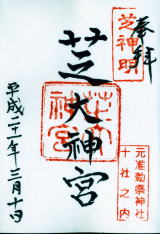 奉拝
芝神明
芝大神宮
芝大神宮
元准勅祭神社
十社之内
平成二十一年三月十日